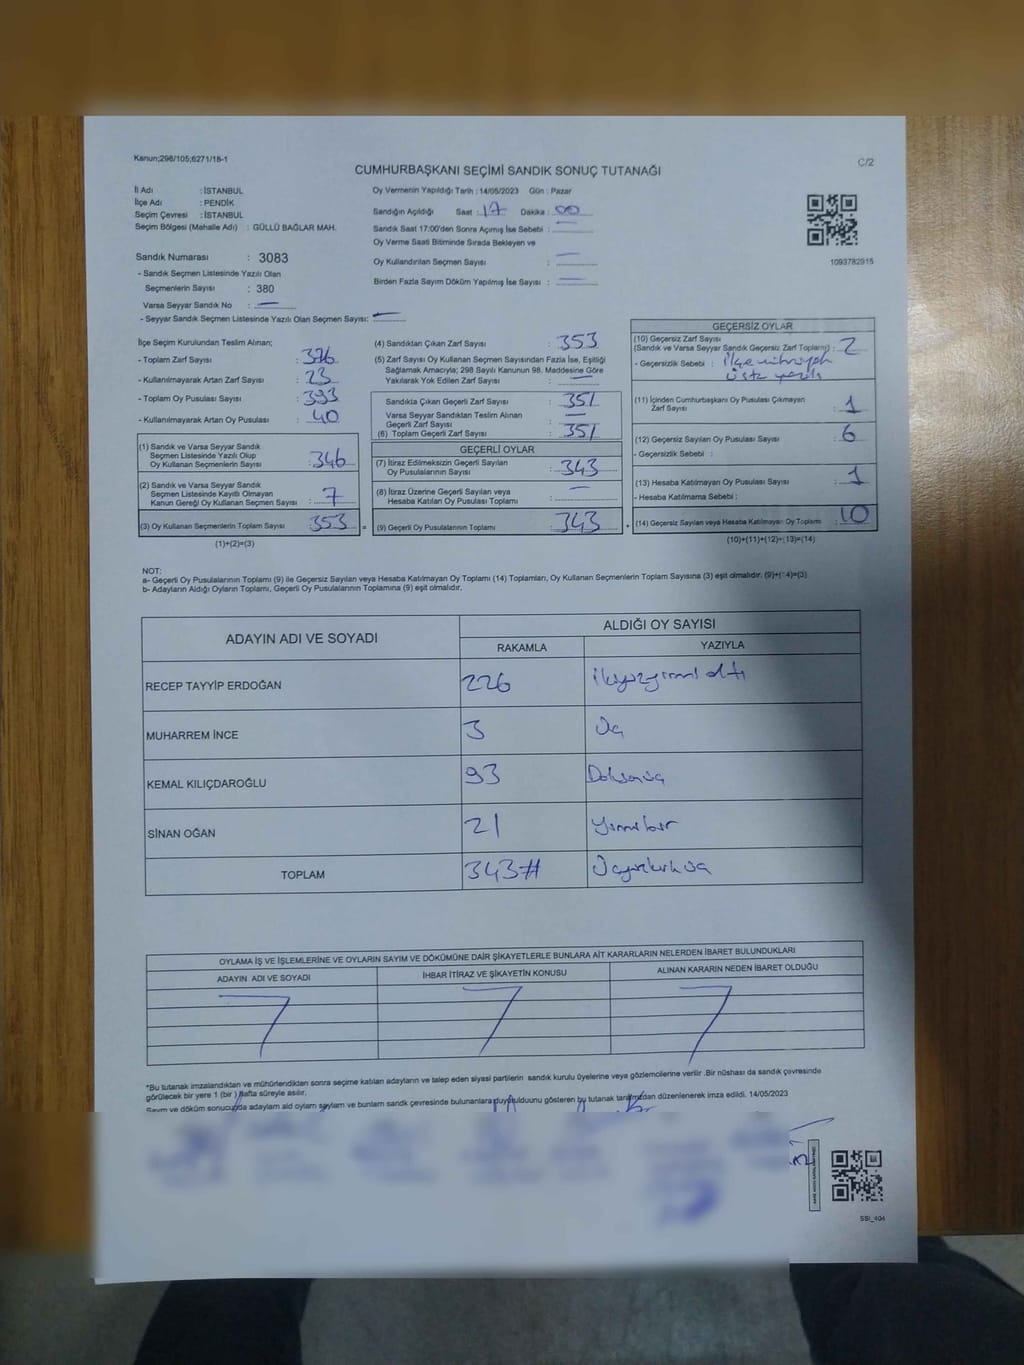 Kanun;298/105;6271/18-1
C/2
CUMHURBAŞKANI SEÇİMİ SANDIK SONUÇ TUTANAĞI
İl Adı : İSTANBUL
İlçe Adı : PENDİK
Seçim Çevresi : İSTANBUL
Seçim Bölgesi (Mahalle Adı) : GÜLLÜ BAĞLAR MAH.
Sandık Numarası : 3083
- Sandık Seçmen Listesinde Yazılı Olan
Seçmenlerin Sayısı : 380
Varsa Seyyar Sandık No : —
- Seyyar Sandık Seçmen Listesinde Yazılı Olan Seçmen Sayısı: —
Oy Vermenin Yapıldığı Tarih : 14/05/2023 Gün : Pazar
Sandığın Açıldığı Saat : 17 Dakika : 00
Sandık Saat 17:00'den Sonra Açımış İse Sebebi : —
Oy Verme Saati Bitiminde Sırada Bekleyen ve
Oy Kullandırılan Seçmen Sayısı : —
Birden Fazla Sayım Döküm Yapılmış İse Sayısı : —
1093782915
İlçe Seçim Kurulundan Teslim Alınan;
- Toplam Zarf Sayısı : 376
- Kullanılmayarak Artan Zarf Sayısı : 23
- Toplam Oy Pusulası Sayısı : 393
- Kullanılmayarak Artan Oy Pusulası : 40
(1) Sandık ve Varsa Seyyar Sandık
Seçmen Listesinde Yazılı Olup
Oy Kullanan Seçmenlerin Sayısı : 346
(2) Sandık ve Varsa Seyyar Sandık
Seçmen Listesinde Kayıtlı Olmayan
Kanun Gereği Oy Kullanan Seçmen Sayısı : 7
(3) Oy Kullanan Seçmenlerin Toplam Sayısı : 353 =
(1)+(2)=(3)
(4) Sandıktan Çıkan Zarf Sayısı : 353
(5) Zarf Sayısı Oy Kullanan Seçmen Sayısından Fazla İse, Eşitliği
Sağlamak Amacıyla; 298 Sayılı Kanunun 98. Maddesine Göre
Yakılarak Yok Edilen Zarf Sayısı : —
Sandıkta Çıkan Geçerli Zarf Sayısı : 351
Varsa Seyyar Sandıktan Teslim Alınan
Geçerli Zarf Sayısı : —
(6) Toplam Geçerli Zarf Sayısı : 351
GEÇERLİ OYLAR
(7) İtiraz Edilmeksizin Geçerli Sayılan
Oy Pusulalarının Sayısı : 343
(8) İtiraz Üzerine Geçerli Sayılan veya
Hesaba Katılan Oy Pusulası Toplamı : —
(9) Geçerli Oy Pusulalarının Toplamı : 343 +
GEÇERSİZ OYLAR
(10) Geçersiz Zarf Sayısı
(Sandık ve Varsa Seyyar Sandık Geçersiz Zarf Toplamı) : 2
- Geçersizlik Sebebi :
(11) İçinden Cumhurbaşkanı Oy Pusulası Çıkmayan
Zarf Sayısı : 1
(12) Geçersiz Sayılan Oy Pusulası Sayısı : 6
- Geçersizlik Sebebi :
(13) Hesaba Katılmayan Oy Pusulası Sayısı : 1
- Hesaba Katılmama Sebebi :
(14) Geçersiz Sayılan veya Hesaba Katılmayan Oy Toplamı : 10
(10)+(11)+(12)+(13)=(14)
NOT:
a- Geçerli Oy Pusulalarının Toplamı (9) ile Geçersiz Sayılan veya Hesaba Katılmayan Oy Toplamı (14) Toplamları, Oy Kullanan Seçmenlerin Toplam Sayısına (3) eşit olmalıdır. (9)+(14)=(3)
b- Adayların Aldığı Oyların Toplamı, Geçerli Oy Pusulalarının Toplamına (9) eşit olmalıdır.
ADAYIN ADI VE SOYADI ALDIĞI OY SAYISI
RAKAMLA YAZIYLA
RECEP TAYYİP ERDOĞAN 226 ikiyüzyirmi altı
MUHARREM İNCE 3 Üç
KEMAL KILIÇDAROĞLU 93 Doksanüç
SİNAN OĞAN 21 Yirmibir
TOPLAM 343# Üçyüzkırküç
OYLAMA İŞ VE İŞLEMLERİNE VE OYLARIN SAYIM VE DÖKÜMÜNE DAİR ŞİKAYETLERLE BUNLARA AİT KARARLARIN NELERDEN İBARET BULUNDUKLARI
ADAYIN ADI VE SOYADI İHBAR İTİRAZ VE ŞİKAYETİN KONUSU ALINAN KARARIN NEDEN İBARET OLDUĞU
*Bu tutanak imzalandıktan ve mühürlendikten sonra seçime katılan adayların ve talep eden siyasi partilerin sandık kurulu üyelerine veya gözlemcilerine verilir .Bir nüshası da sandık çevresinde
görülecek bir yere 1 (bir ) hafta süreyle asılır.
Sayım ve döküm sonucunda adayların aldığı oyların sayısını ve bunların sandık çevresinde bulunanlara duyurulduğunu gösteren bu tutanak tarafımızdan düzenlenerek imza edildi. 14/05/2023
SSI_404